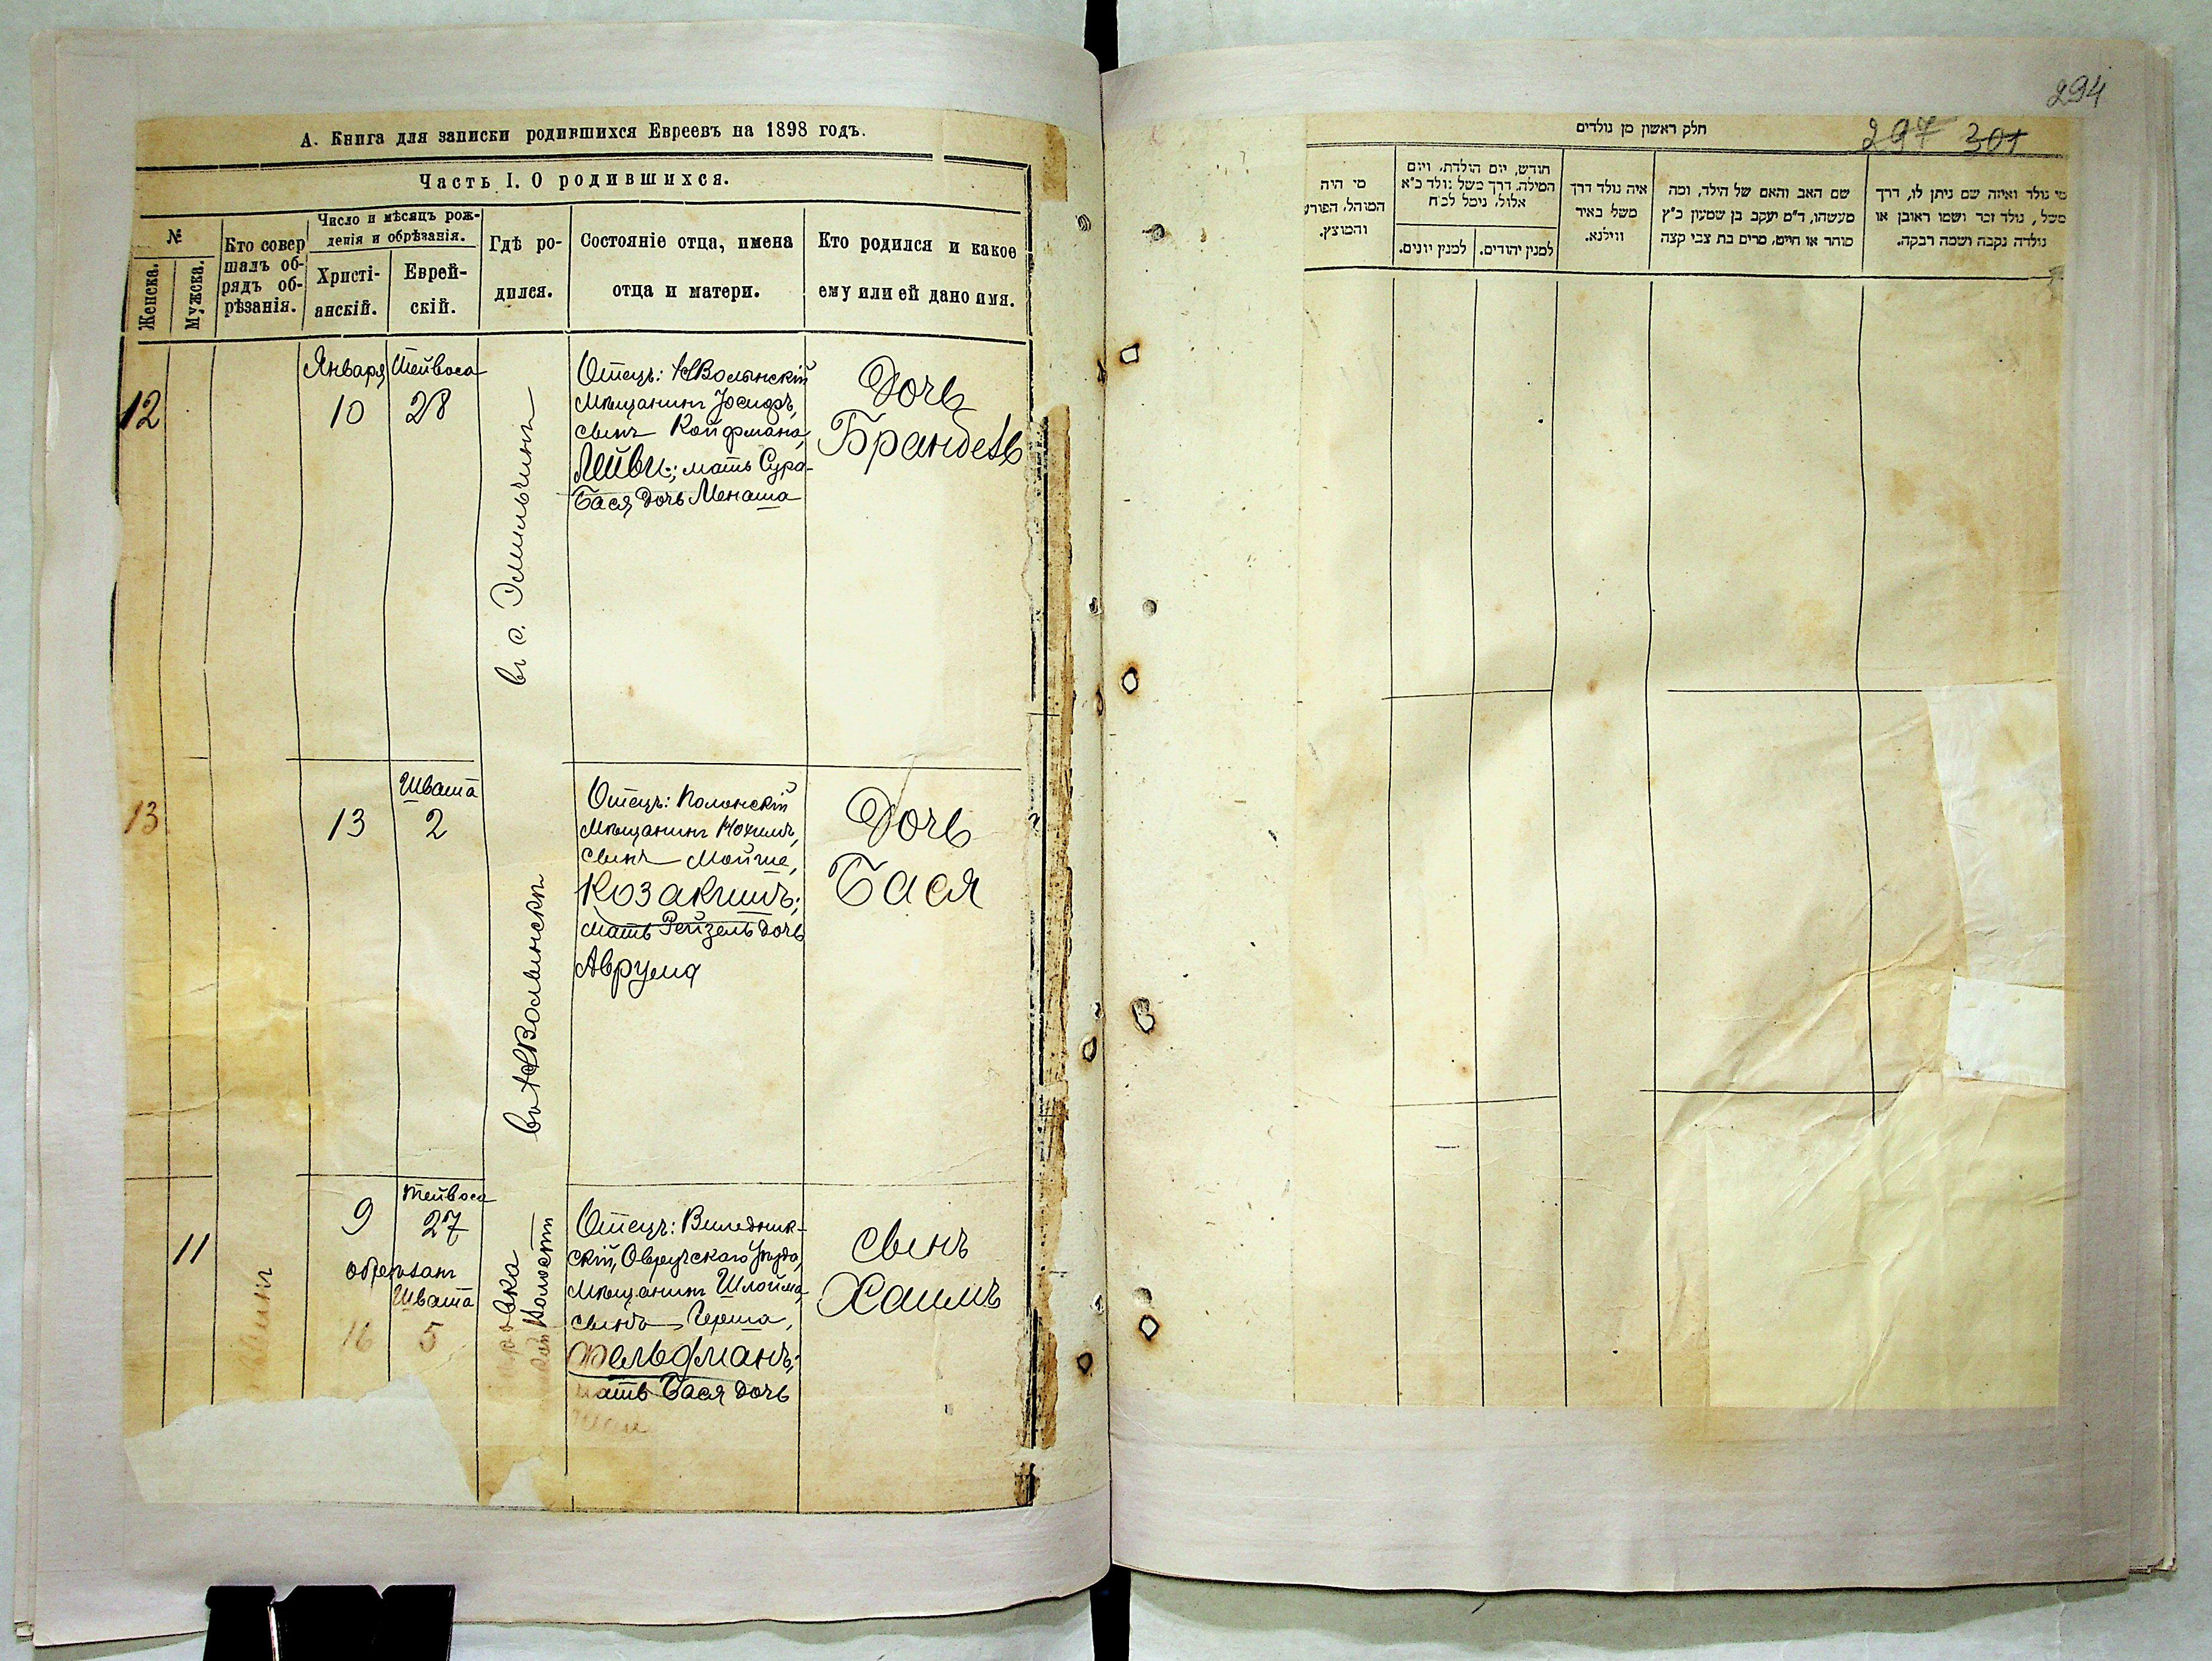 А. Книга для записки родившихся Евреевъ на 1898 годъ.
Часть I. О родившихся.
№
Женска.
Мужска.
Кто совер
шалъ об-
рядъ об-
рѣзанія.
Число и мѣсяцъ рож-
денія и обрѣзанія.
Христі-
анскій.
Еврей-
скій.
Гдѣ ро-
дился.
Состояніе отца, имена
отца и матери.
Кто родился и какое
ему или ей дано имя.
12
Января
10
Тейвоса
28
въ с. Эмильчинѣ
Отецъ: НВолынскій
Мѣщанинъ Іосифъ,
сынъ Койфмана,
Лейви; мать Сура-
Бася дочь Менаша
Дочь
Брандель
13
13
Швата
2
въ НВолынскѣ
Отецъ: Полонскій
Мѣщанинъ Нохимъ,
сынъ Мойше,
Козакишъ;
мать Рейзель дочь
Аврума
Дочь
Бася
11
9
Тейвоса
27
обрѣзанъ
Швата
16
5
Волости
Отецъ: Виледник-
скій, Овручскаго Уѣзда,
Мѣщанинъ Шлойма,
сынъ Герша,
Фельдманъ;
мать Бася дочь
сынъ
Хаимъ
294
297 301
חלק ראשון מן נולדים
מי נולד ואיזה שם ניתן לו, דרך
משל, נולד זכר ושמו ראובן או
נולדה נקבה ושמה רבקה.
שם האב והאם של הילד, ומה
מעשהו, ד"מ יעקב בן שמעון כ"ץ
סוחר או חייט, מרים בת צבי קצה
איה נולד דרך
משל באיר
ווילנא.
חודש, יום הולדת, ויום
המילה, דרך משל נולד כ"א
אלול, נימל לכ"ח
למנין יהודים.
למנין יונים.
מי היה
המוהל, הפורע
והמוצץ.